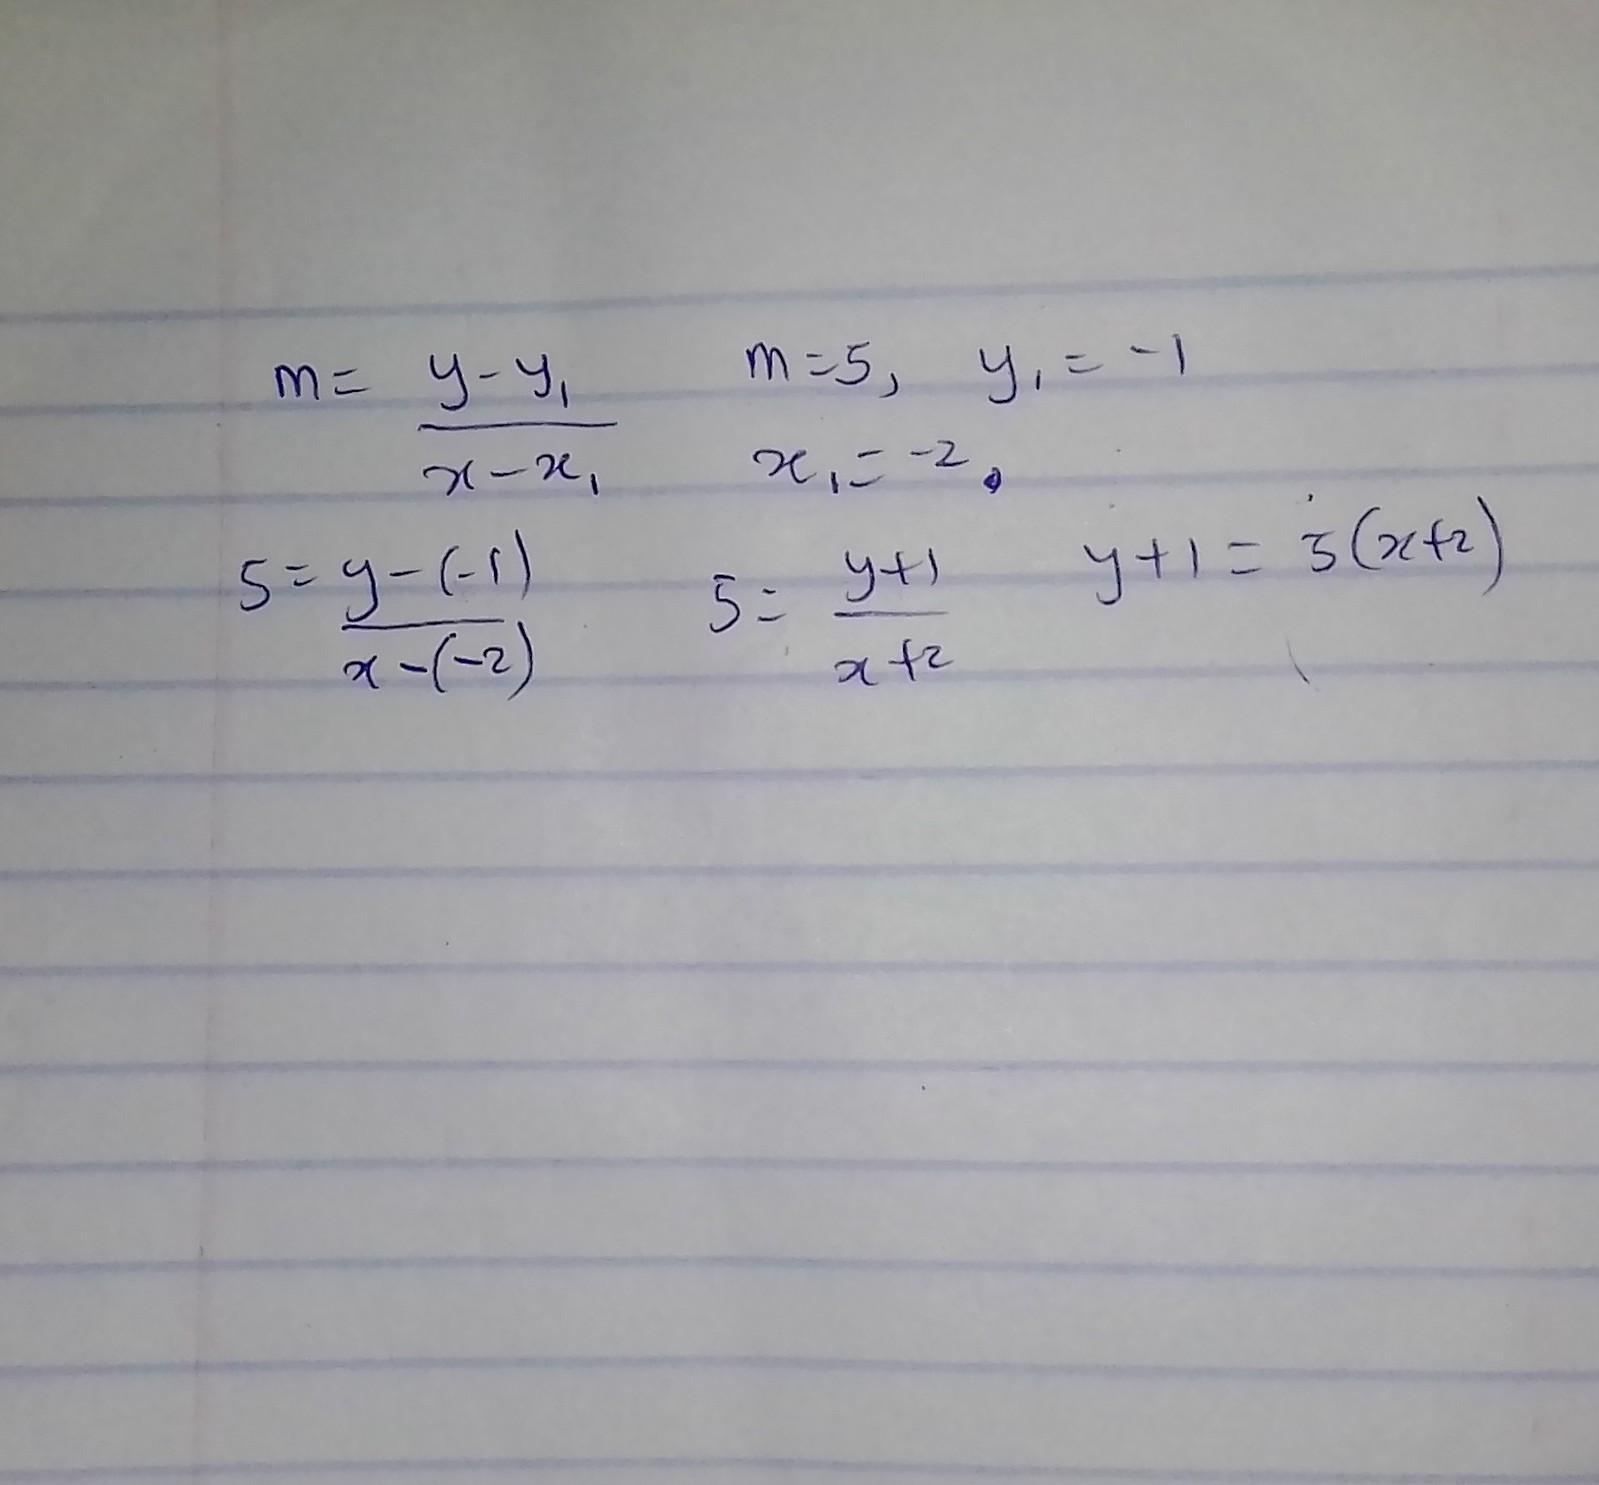 m = y - y₁ / x - x₁    m = 5, y₁ = -1
x₁ = -2.
5 = y - (-1) / x - (-2)    5 = y+1 / x+2    y+1 = 5(x+2)